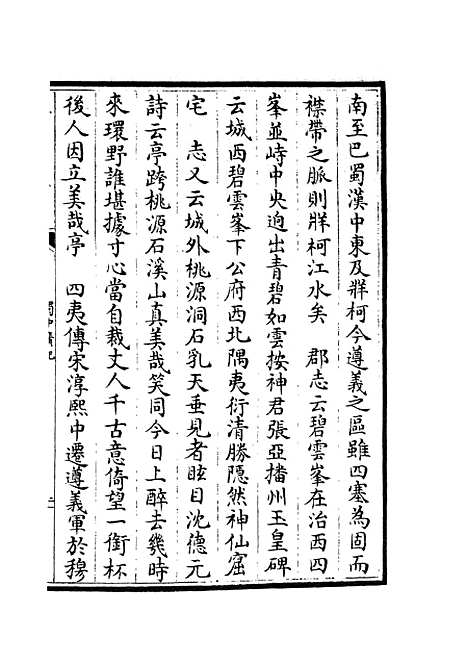 南至巴蜀漢中東及牂柯今遵義之區雖四塞為固而
襟帶之脈則牂柯江水矣　郡志云碧雲峯在治西四
峯並峙中央迥出青碧如雲按神君張亞播州玉皇碑
云城西碧雲峯下公府西北隅夷衍清勝隱然神仙窟
宅　志又云城外桃源洞石乳天垂見者眩目沈德元
詩云亭跨桃源石溪山真美哉笑同今日上醉去幾時
來環野誰堪據寸心當自裁丈人千古意倚望一銜杯
後人因立美哉亭　四夷傳宋淳熙中遷遵義軍於穆